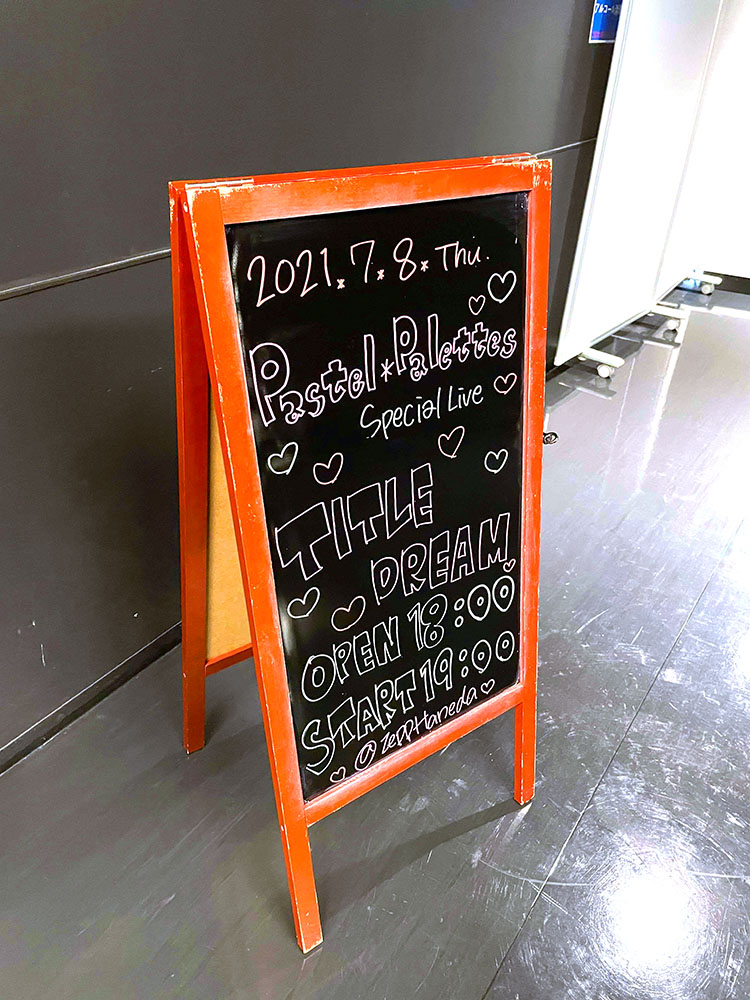 2021.7.8.Thu.
Pastel*Palettes
Special Live
TITLE
DREAM
OPEN 18:00
START 19:00
@ZeppHaneda